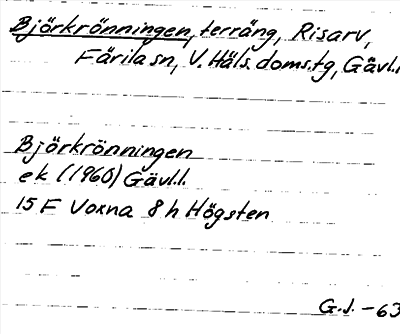 Björkrönningen, terräng, Risarv,
Färila sn, V. Häls. doms.tg, Gävl.l.
Björkrönningen
ek (1960) Gävl.l.
15 F Voxna 8 h Högsten
G.J. - 63